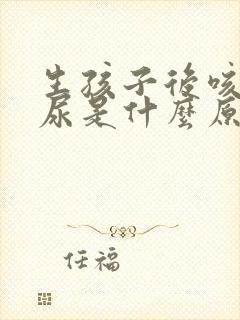 生孩子後咳
尿是什麼原
任福